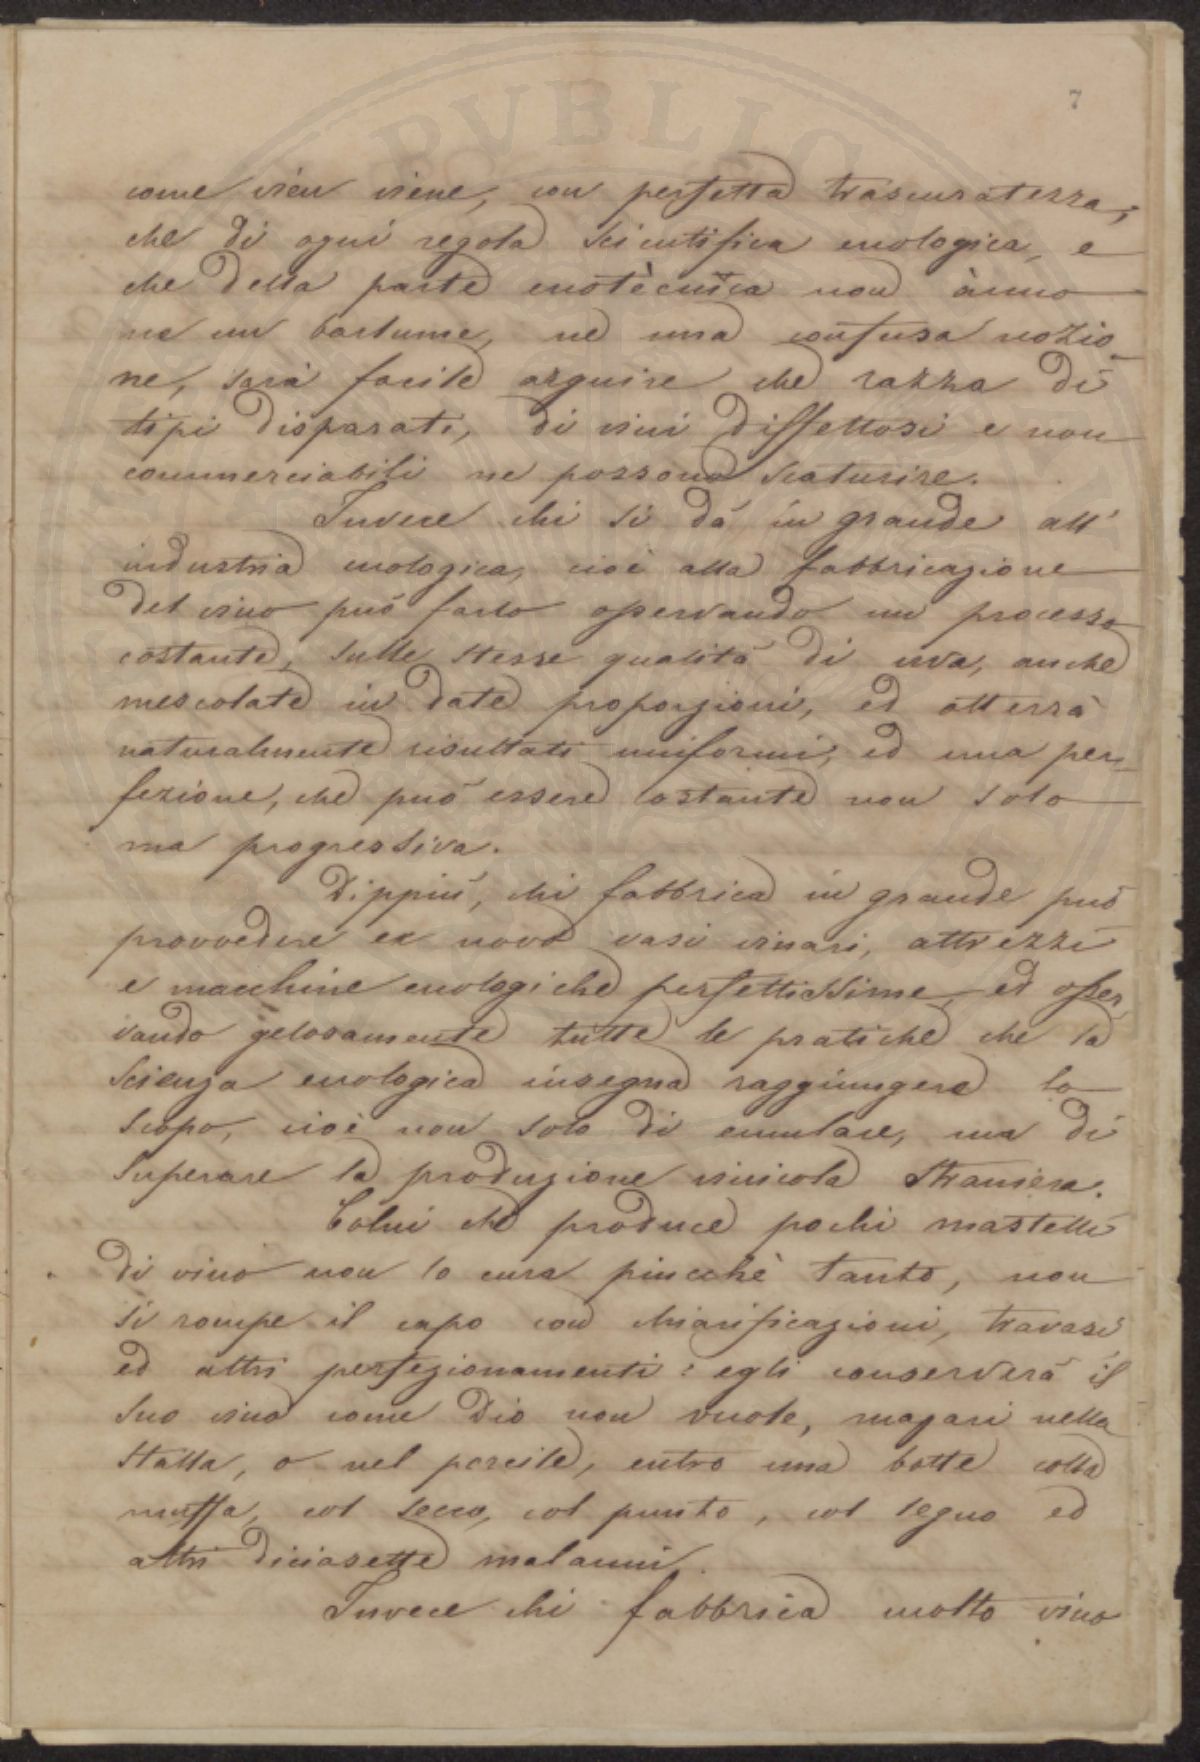 PVBLIC
7
come vien viene, con perfetta trascuratezza,
che di ogni regola scientifica enologica, e
che della parte enotècnica non ànno
ne un barlume, ne una confusa nozio
ne, sarà facile arguire che razza di
tipi disparati, di vini diffettosi e non
commerciabili ne possono scaturire.
Invece chi si dá in grande all'
industria enologica, cioè alla fabbricazione
del vino può farlo osservando un processo
costante, sulle stesse qualitá di uva, anche
mescolate in date proporzioni, ed otterrà
naturalmente risultati uniformi, ed una per
fezione, che può essere costante non solo
ma progressiva.
Dippiú, chi fabbrica in grande può
provvedere ex novo vasi vinari, attrezzi
e macchine enologiche perfettissime, ed osser
vando gelosamente tutte le pratiche che la
scienza enologica insegna raggiungere lo
scopo, cioè non solo di emulare, ma di
superare la produzione vinicola straniera.
Colui che produce pochi mastelli
di vino non lo cura piucchè tanto, non
si rompe il capo con chiarificazioni, travasi
ed altri perfezionamenti: egli conserverá il
suo vino come Dio non vuole, magari nella
stalla, o nel porcile, entro una botte colla
muffa, col secco, col punto, col legno ed
altri diciasette malanni.
Invece chi fabbrica molto vino